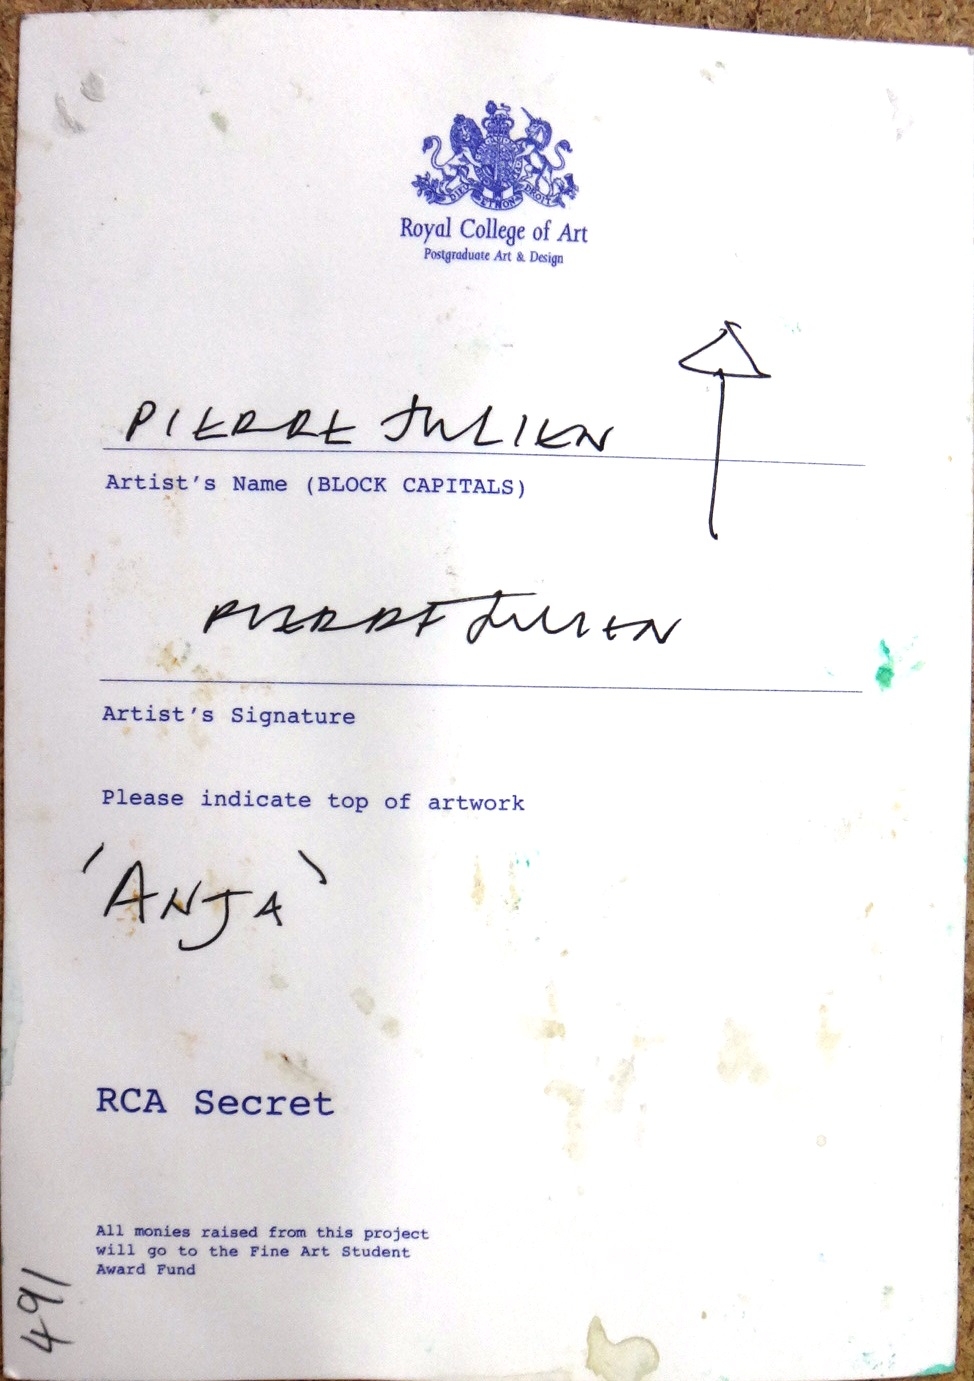 DIEU ET MON DROIT
Royal College of Art
Postgraduate Art & Design
PIERRE JULIEN
Artist's Name (BLOCK CAPITALS)
PIERRE JULIEN
Artist's Signature
Please indicate top of artwork
'ANJA'
RCA Secret
All monies raised from this project
will go to the Fine Art Student
Award Fund
491